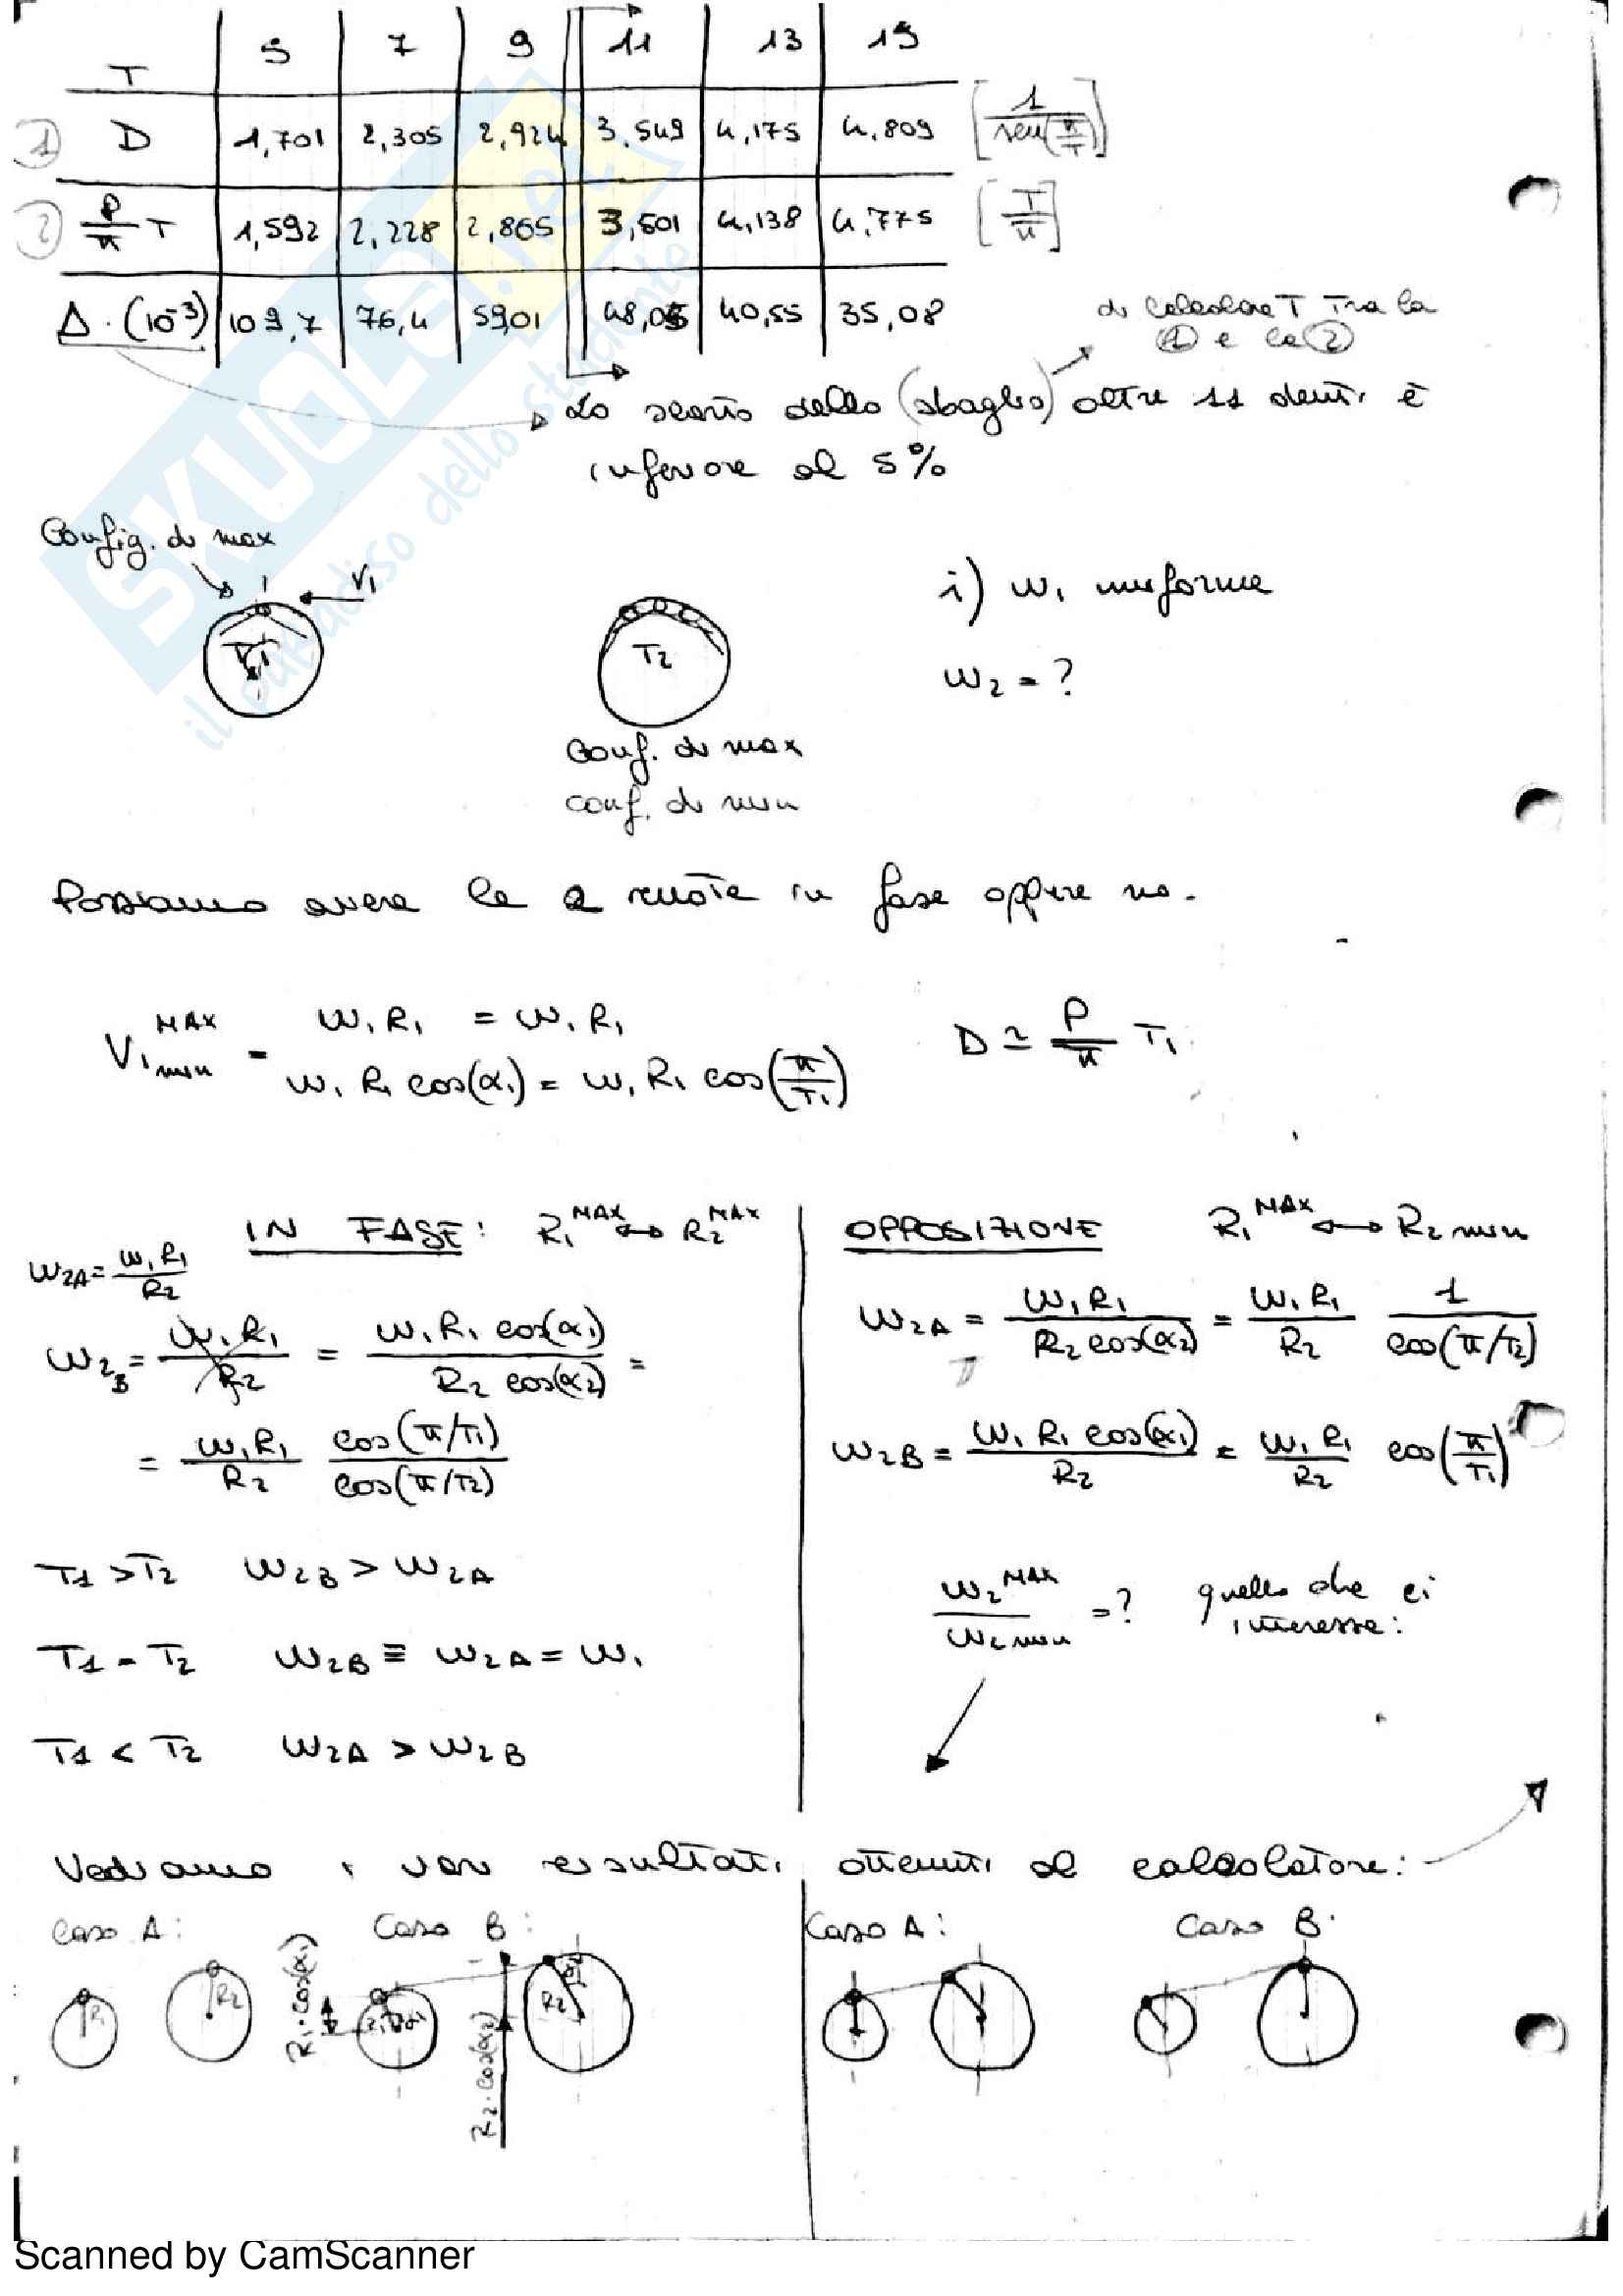 T | 5 | 7 | 9 | 11 | 13 | 15
① D | 1,701 | 2,305 | 2,924 | 3.549 | 4,175 | 4.809 [1/sen(π/T)]
② P/π T | 1,592 | 2,228 | 2,865 | 3,501 | 4,138 | 4,775 [T/π]
Δ·(10⁻³) | 109,7 | 76,4 | 59,01 | 48,05 | 40,55 | 35,08
di calcolare T tra la
① e la ②
Lo scarto dello (sbaglio) oltre 11 denti è
inferiore al 5%
Config. di max
V₁
T₂
i) ω₁ uniforme
ω₂ = ?
Conf. di max
conf. di min
Possiamo avere le 2 ruote in fase oppure no.
V₁min^MAX = ω₁R₁ = ω₁R₁
ω₁ R₁ cos(α₁) = ω₁ R₁ cos(π/T₁)
D ≃ P/π T₁
IN FASE: R₁^MAX ↔ R₂^MAX
ω2A = ω₁R₁/R₂
ω2B = ω₁R₁/R₂ = ω₁R₁ cos(α₁)/R₂ cos(α₂) =
= ω₁R₁/R₂ cos(π/T₁)/cos(π/T₂)
T1 > T2 ω2B > ω2A
T1 = T2 ω2B ≡ ω2A = ω₁
T1 < T2 ω2A > ω2B
OPPOSIZIONE R₁^MAX ↔ R₂ min
ω2A = ω₁R₁/R₂cos(α₂) = ω₁R₁/R₂ 1/cos(π/T₂)
ω2B = ω₁ R₁ cos(α₁)/R₂ = ω₁ R₁/R₂ cos(π/T₁)
ω₂^MAX/ω₂ min = ? quello che ci
interessa:
Vediamo i vari risultati ottenuti al calcolatore:
Caso A: Caso B:
R₁ R₂ R₁·cos(α₁) R₂·cos(α₂) R₂ α₂
Caso A: Caso B:
SKUOLA.net
il paradiso dello studente
Scanned by CamScanner